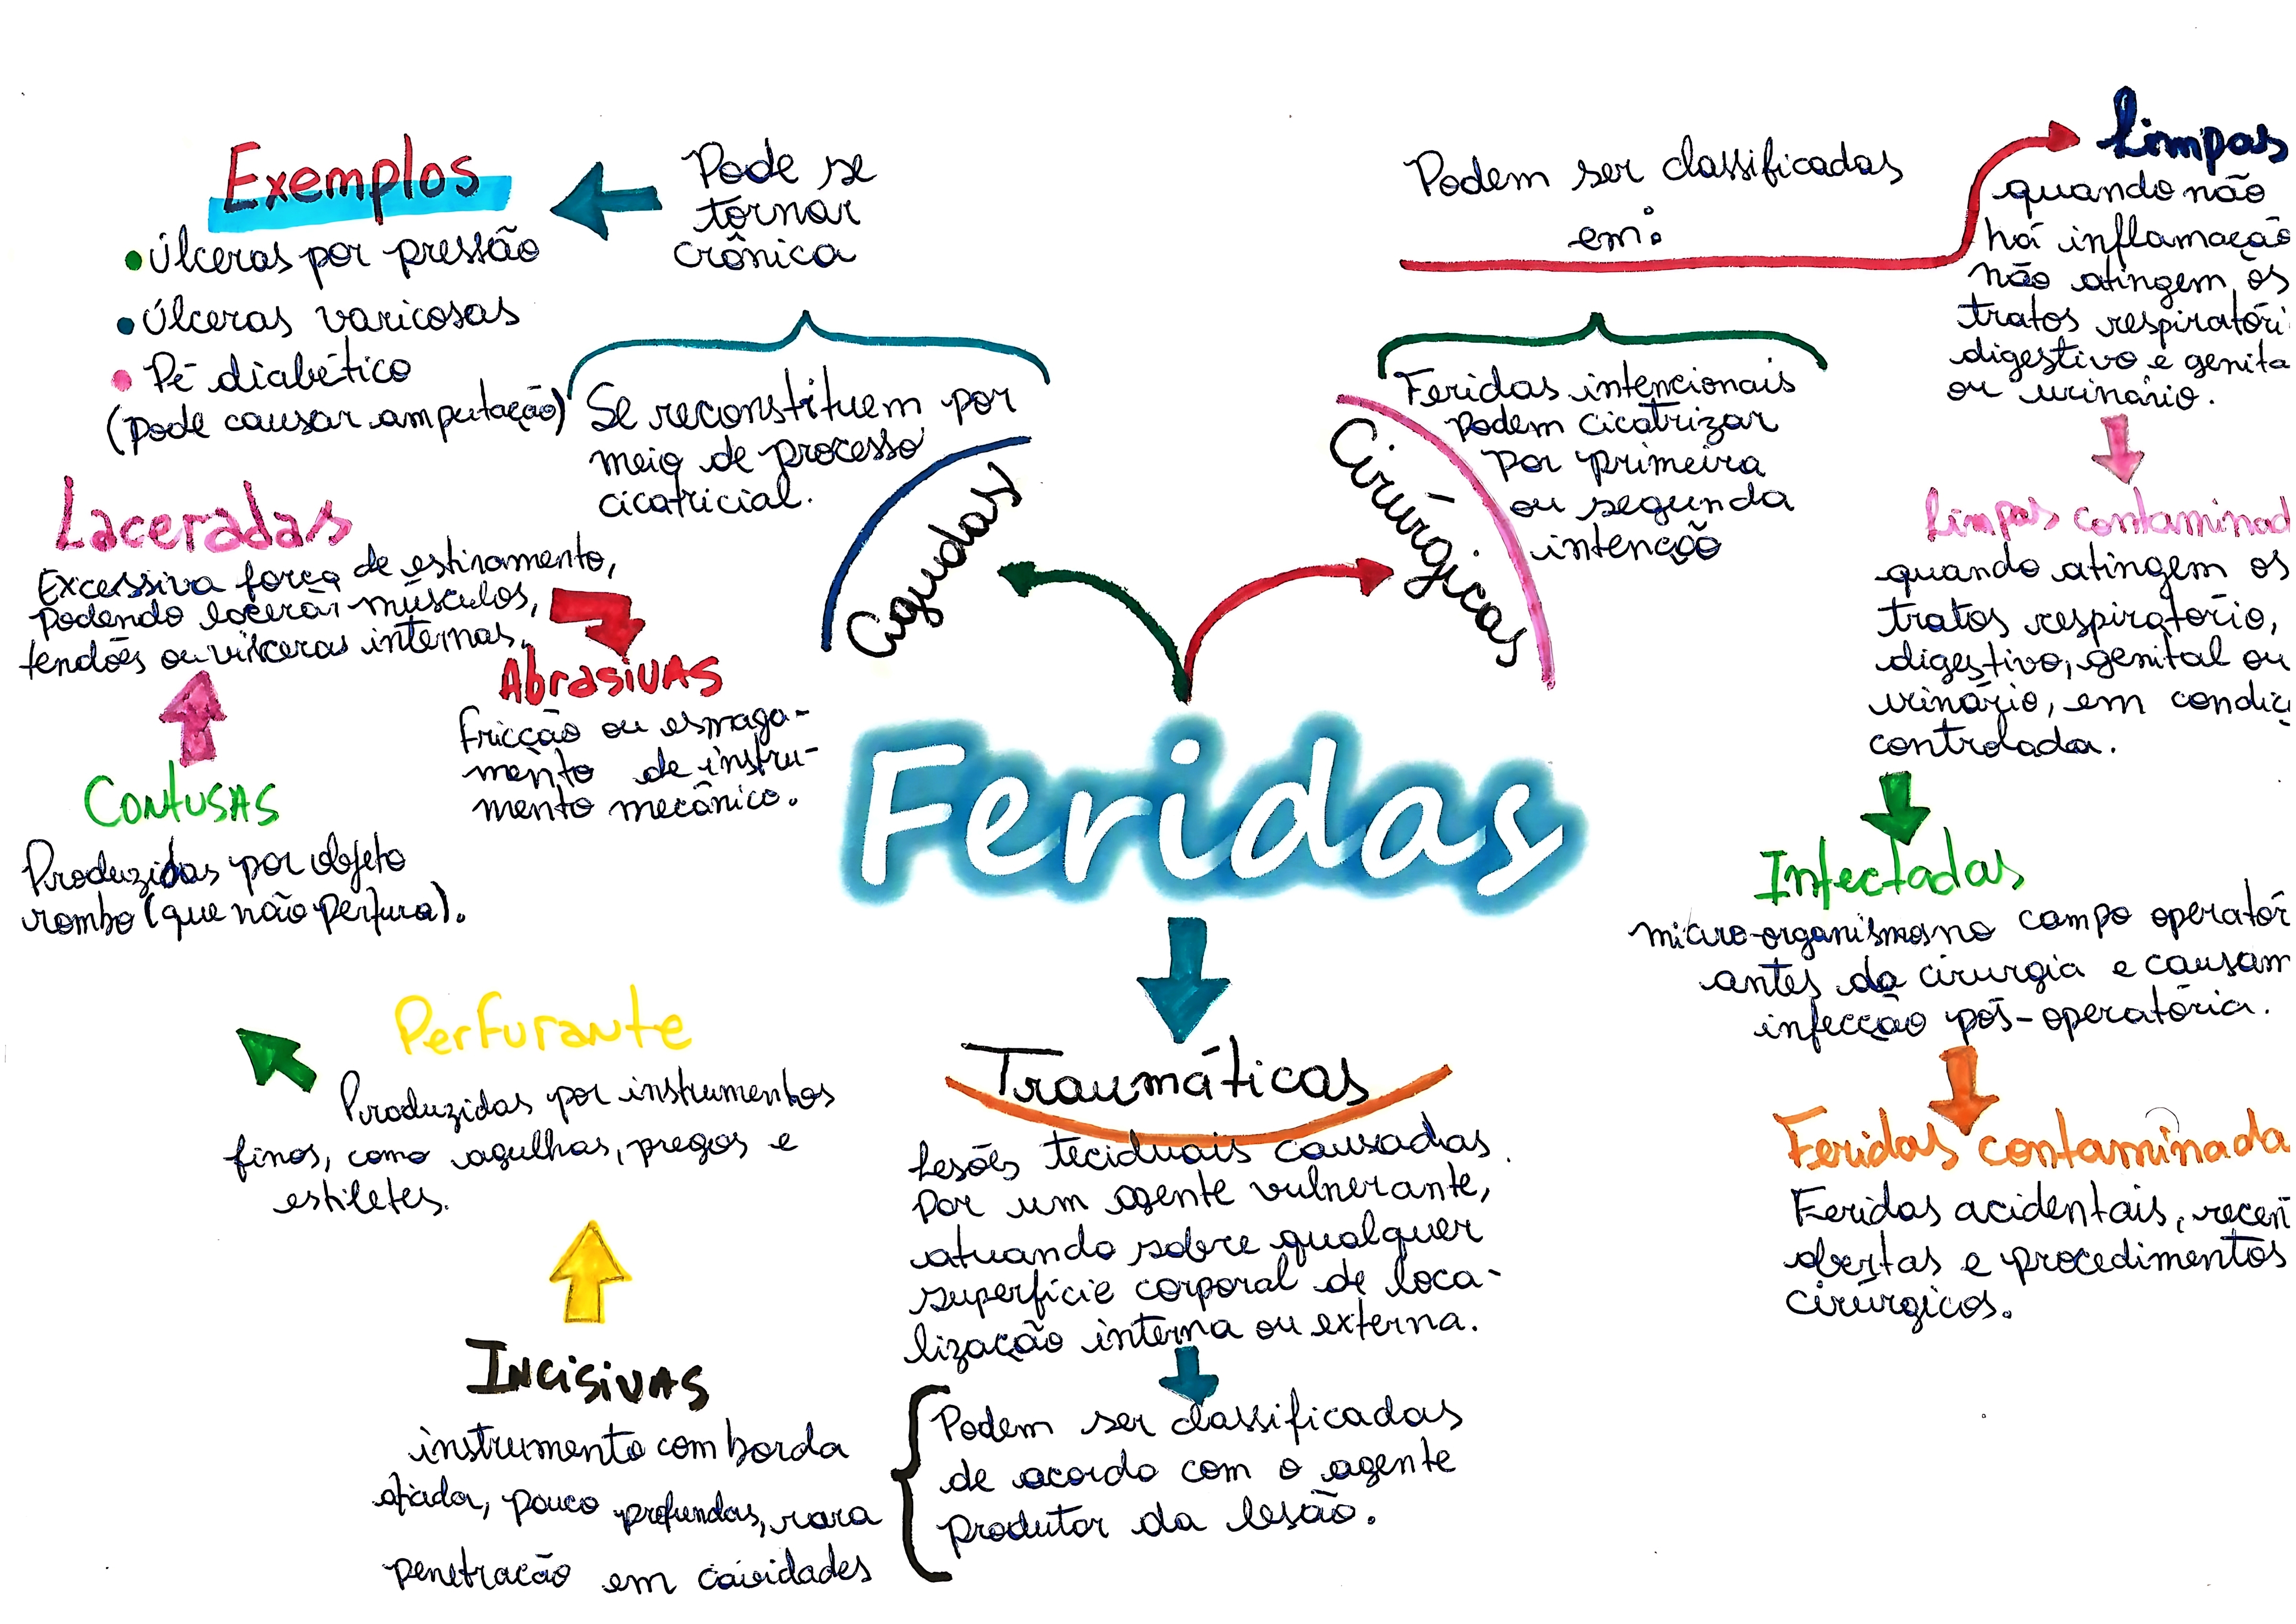 Feridas
Agudas
Se reconstituem por
meio de processo
cicatricial.
Pode se
tornar
crônica
Exemplos
• Úlceras por pressão
• Úlceras varicosas
• Pé diabético
(pode causar amputação)
Cirúrgicas
Feridas intencionais
podem cicatrizar
por primeira
ou segunda
intenção
Podem ser classificadas
em:
Limpas
quando não
há inflamação
não atingem os
tratos respiratóri
digestivo e genita
ou urinário.
Limpas contaminad
quando atingem os
tratos respiratório,
digestivo, genital ou
urinário, em condiç
controlada.
Infectadas
micro-organismos no campo operatór
antes da cirurgia e causam
infecção pós-operatória.
Feridas contaminada
Feridas acidentais, recen
abertas e procedimentos
cirúrgicos.
Traumáticas
Lesões teciduais causadas
por um agente vulnerante,
atuando sobre qualquer
superfície corporal de loca-
lização interna ou externa.
Podem ser classificadas
de acordo com o agente
produtor da lesão.
Incisivas
instrumento com borda
afiada, pouco profundas, rara
penetração em cavidades
Perfurante
Produzidas por instrumentos
finos, como agulhas, pregos e
estiletes.
Contusas
Produzidas por objeto
rombo (que não perfura).
Laceradas
Excessiva força de estiramento,
podendo lacerar músculos,
tendões ou vísceras internas.
Abrasivas
fricção ou esmaga-
mento de instru-
mento mecânico.